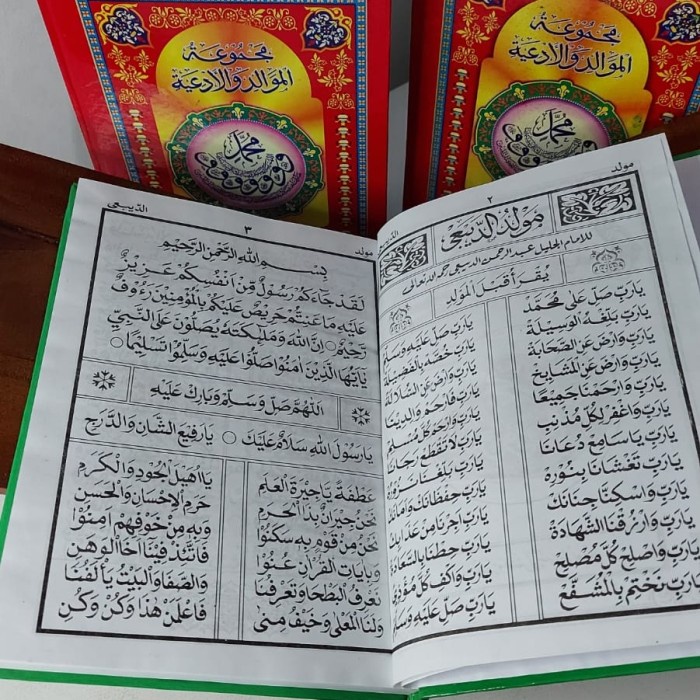 مجموعة
الموالد والأدعية
محمد
مجموعة
الموالد والأدعية
محمد
مولد
٢
مولد الديبعى
للامام الجليل عبد الرحمن الديبعى رحمه الله تعالى
يقرأ قبل المولد
يارب صل على محمد يارب صل عليه وسلم
يارب بلغه الوسيلة يارب خصه بالفضيلة
يارب وارض عن الصحابة يارب وارض عن السلالة
يارب وارض عن المشايخ يارب فارحم والدينا
يارب وارحمنا جميعا يارب وارحم كل مسلم
يارب واغفر لكل مذنب يارب لا تقطع رجانا
يارب ياسامع دعانا يارب بلغنا نزوره
يارب تغشانا بنوره يارب حفظانك وامانك
يارب واسكنا جنانك يارب اجرنا من عذابك
يارب وارزقنا الشهادة يارب حطنا بالسعادة
يارب واصلح كل مصلح يارب واكف كل مؤذى
يارب نختم بالمشفع يارب صل عليه وسلم
مولد
٣
الديبعى
بسم الله الرحمن الرحيم
لقد جاءكم رسول من انفسكم عزيز
عليه ما عنتم حريص عليكم بالمؤمنين رءوف
رحيم ان الله وملئكته يصلون على النبي
يايها الذين امنوا صلوا عليه وسلموا تسليما
اللهم صل وسلم وبارك عليه
يارسول الله سلام عليك ○ يارفيع الشان والدرج
عطفة ياجيرة العلم يااهيل الجود والكرم
نحن جيران بذا الحرم حرم الاحسان والحسن
نحن من قوم به سكنوا وبه من خوفهم امنوا
وبايات القران عنوا فاتئد فينا اخا الوهن
نعرف البطحا وتعرفنا والصفا والبيت يألفنا
ولنا المعلى وخيف منى فاعلمن هذا وكن وكن